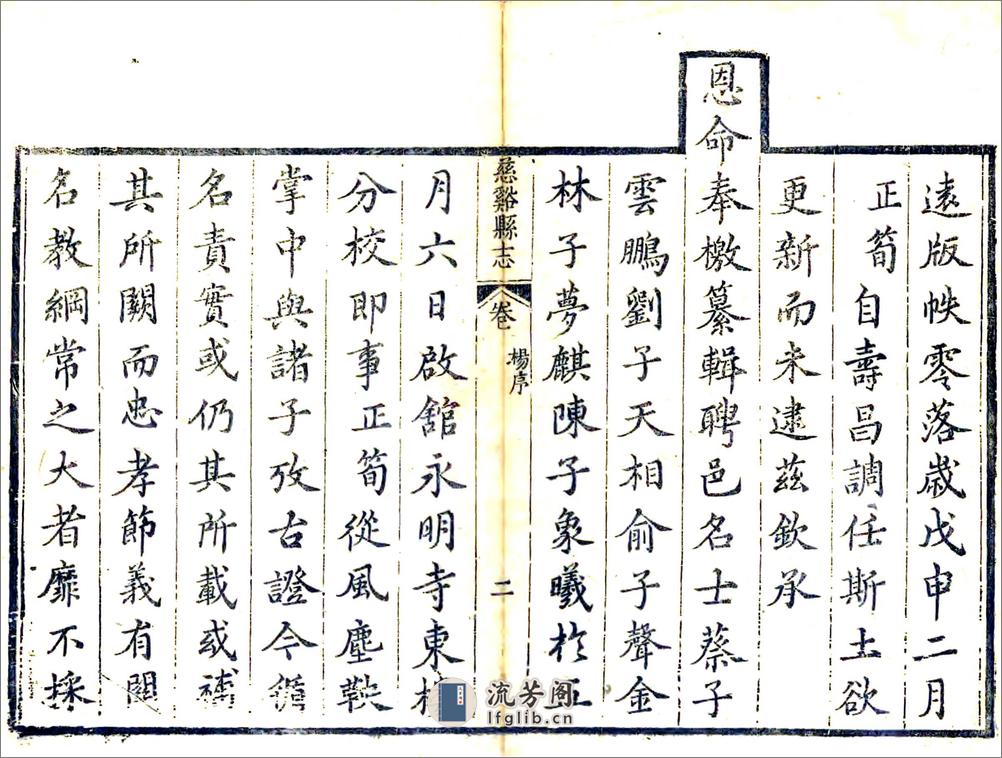 遠版帙零落歲戊申二月
正筍自壽昌調任斯土欲
更新而未逮茲欽承
恩命奉檄纂輯聘邑名士蔡子
雲鵬劉子天相俞子聲金
林子夢麒陳子象曦於五
慈谿縣志
卷
楊序
二
月六日啟舘永明寺東
分校即事正筍從風塵鞅
掌中與諸子攷古證今循
名責實或仍其所載或補
其所闕而忠孝節義有関
名教綱常之大者靡不採
流芳阁
lfglib.cn